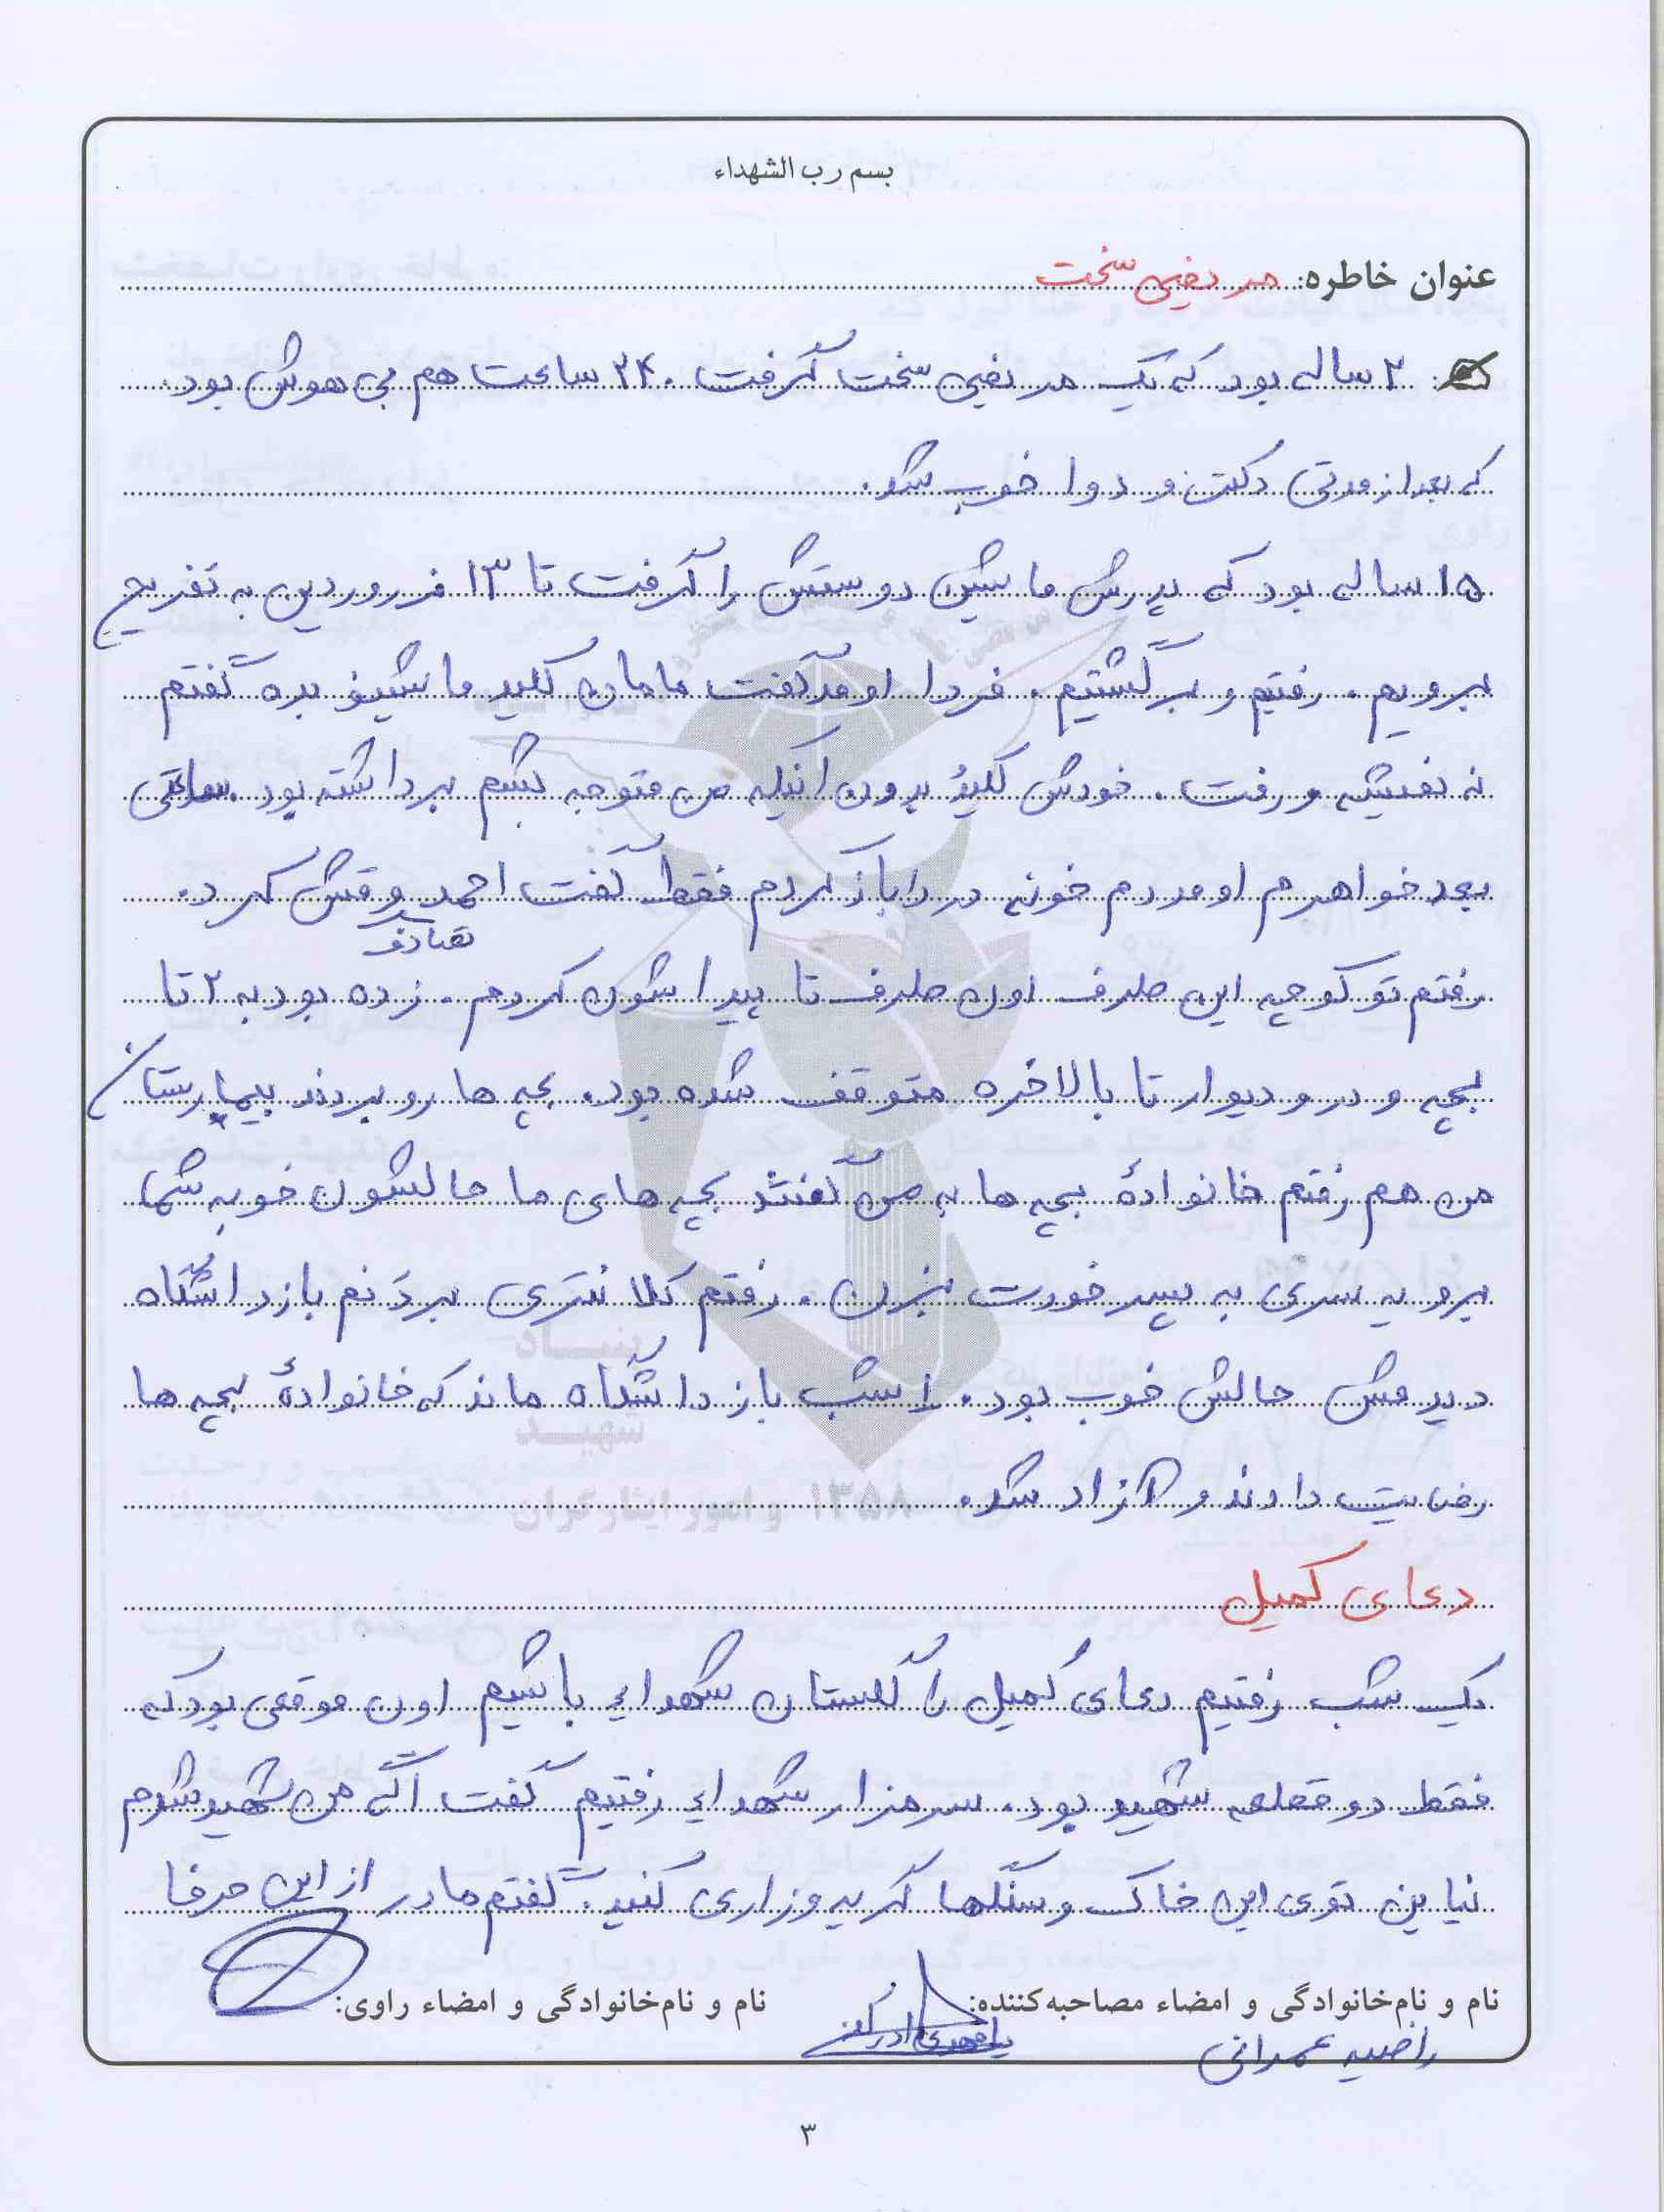 بسم رب الشهداء
عنوان خاطره: مریضی سخت
۲ ساله بود که یک مریضی سخت گرفت. ۲۴ ساعت هم بی هوش بود
که بعد از مدتی دکتر و دوا خوب شد.
۱۵ ساله بود که پدرش ماشین دوستش را گرفت تا ۱۳ فروردین به تفریح
برویم. رفتیم و برگشتیم. فردا اومد گفت مامان کلید ماشینو بده گفتم
نه نمیشه و رفت. خودش کلیدُ بدون اینکه من متوجه بشم برداشته بود. ساعتی
بعد خواهرم اومد دم خونه در را باز کردم فقط گفت احمد و قش کرد.
تصادف
رفتم تو کوچه این طرف اون طرف تا پیداشون کردم. زده بود به ۲ تا
بچه و در و دیوار تا بالاخره متوقف شده بود. بچه ها رو بردند بیمارستان
من هم رفتم خانوادهٔ بچه ها به من گفتند بچه های ما حالشون خوبه شما
برو یه سری به پسر خودت بزن. رفتم کلانتری بردنم بازداشگاه
دیدمش حالش خوب بود. ۱ شب بازداشگاه ماند که خانوادهٔ بچه ها
رضایت دادند و آزاد شد.
دعای کمیل
یک شب رفتیم دعای کُمیل را گلستان شهداء باشیم اون موقعی بود که
فقط دو قطعه شهید بود. سر مزار شهداء رفتیم گفت اگه من شهید شدم
نیاین توی این خاک و سنگها گریه و زاری کنید. گفتم مادر از این حرفا
نام و نام‌خانوادگی و امضاء مصاحبه‌کننده: نام و نام‌خانوادگی و امضاء راوی:
راضیه عمرانی
۳
بنیاد
شهید
و امور ایثارگران ۱۳۵۸